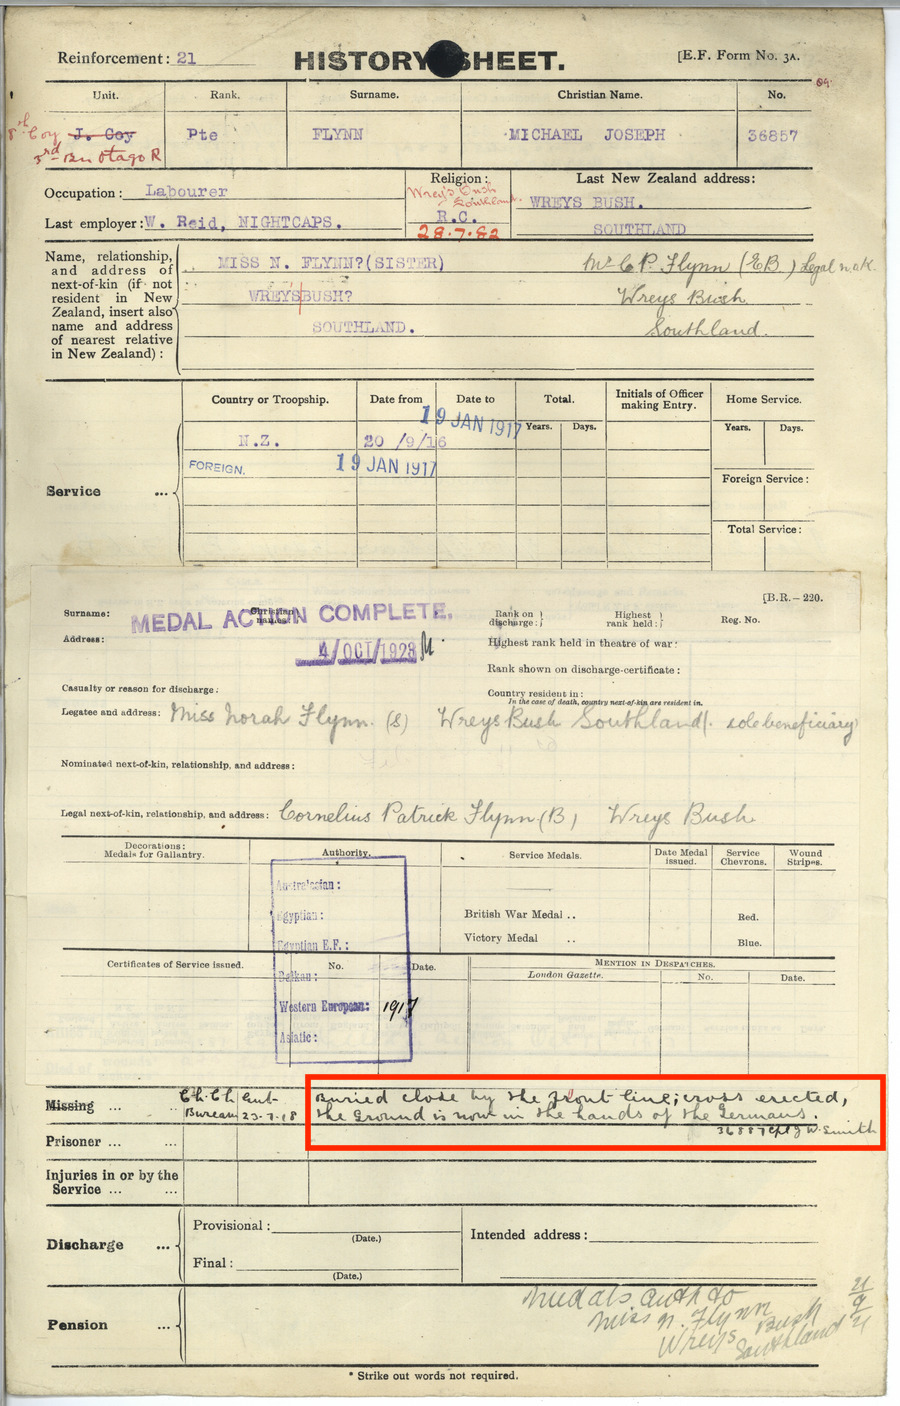 Reinforcement: 21 HISTORY SHEET. [E.F. Form No. 3A.
Unit. Rank. Surname. Christian Name. No.
8th Coy J. Coy Pte FLYNN MICHAEL JOSEPH 36857
3rd Bn Otago R
Occupation: Labourer
Last employer: W. Reid, NIGHTCAPS.
Religion:
Wrey's Bush
Southland.
R.C.
28.7.82
Last New Zealand address:
WREYS BUSH.
SOUTHLAND
Name, relationship,
and address of
next-of-kin (if not
resident in New
Zealand, insert also
name and address
of nearest relative
in New Zealand):
MISS N. FLYNN?(SISTER)
WREYSBUSH?
SOUTHLAND.
Mr C P. Flynn (E.B.) Legal n.o.k.
Wreys Bush
Southland.
Service ...
Country or Troopship. Date from Date to Total. Initials of Officer
making Entry.
Home Service.
19 JAN 1917 Years. Days. Years. Days.
N.Z. 20/9/16
FOREIGN. 19 JAN 1917
Foreign Service:
Total Service:
[B.R.—220.
Surname: Christian
names:
MEDAL ACTION COMPLETE.
Rank on
discharge:
Highest
rank held:
Reg. No.
Address: 4/OCT/1923
Highest rank held in theatre of war:
Rank shown on discharge-certificate:
Casualty or reason for discharge:
Country resident in:
In the case of death, country next-of-kin are resident in.
Legatee and address: Miss Norah Flynn. (S) Wreys Bush Southland. sole beneficiary
Nominated next-of-kin, relationship, and address:
Legal next-of-kin, relationship, and address: Cornelius Patrick Flynn (B) Wreys Bush
Decorations:
Medals for Gallantry.
Authority. Service Medals. Date Medal
issued.
Service
Chevrons.
Wound
Stripes.
Australasian:
Egyptian: British War Medal .. Red.
Egyptian E.F.: Victory Medal .. Blue.
Certificates of Service issued. No. Date. MENTION IN DESPATCHES.
London Gazette. No. Date.
Balkan:
Western European: 1917
Asiatic:
Missing ... ... Ch. Ch Enqt
Bureau 23-7-18
Buried close by the front line; cross erected,
the Ground is now in the hands of the Germans.
36887 Cpl J W. Smith
Prisoner ... ...
Injuries in or by the
Service ... ...
Discharge ...
Provisional:
(Date.)
Final:
(Date.)
Intended address:
Pension ...
Medals. auth to
Miss N. Flynn
Wreys Bush
Southland
21
9
21
* Strike out words not required.